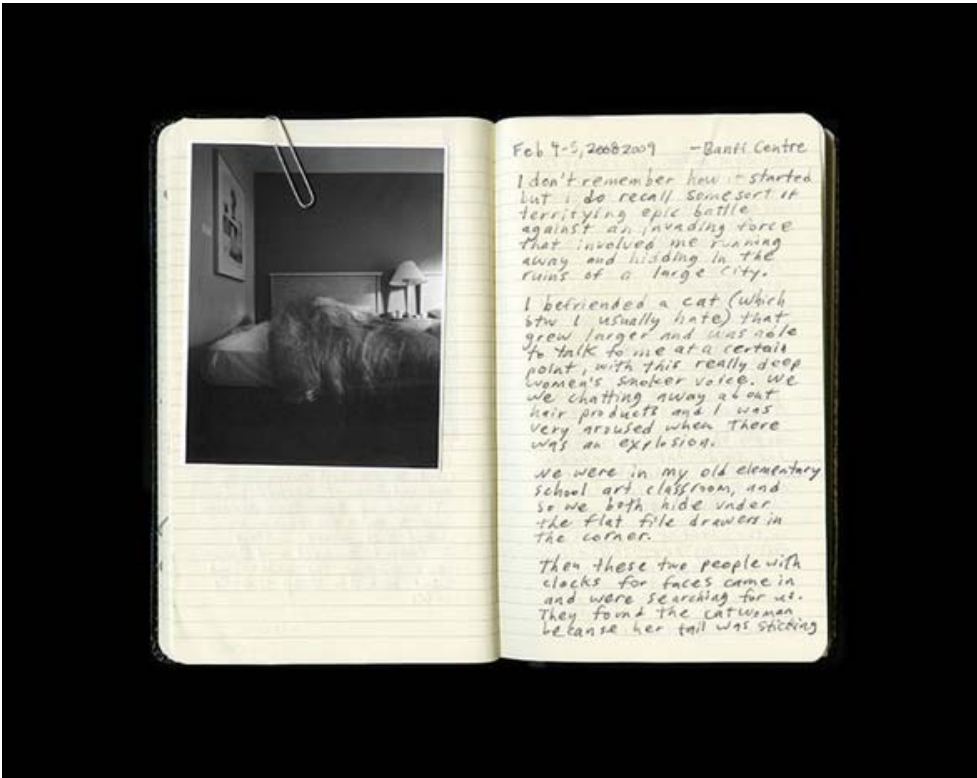 Feb 4-5, 2008 2009 - Banff Centre
I don't remember how it started
but i do recall some sort of
terrifying epic battle
against an invading force
that involved me running
away and hidding in the
ruins of a large city.
I befriended a cat (which
btw I usually hate) that
grew larger and was able
to talk to me at a certain
point, with this really deep
women's smoker voice. We
we chatting away about
hair products and I was
very aroused when there
was an explosion.
We were in my old elementary
school art classroom, and
so we both hide under
the flat file drawers in
the corner.
Then these two people with
clocks for faces came in
and were searching for us.
They found the catwoman
because her tail was sticking